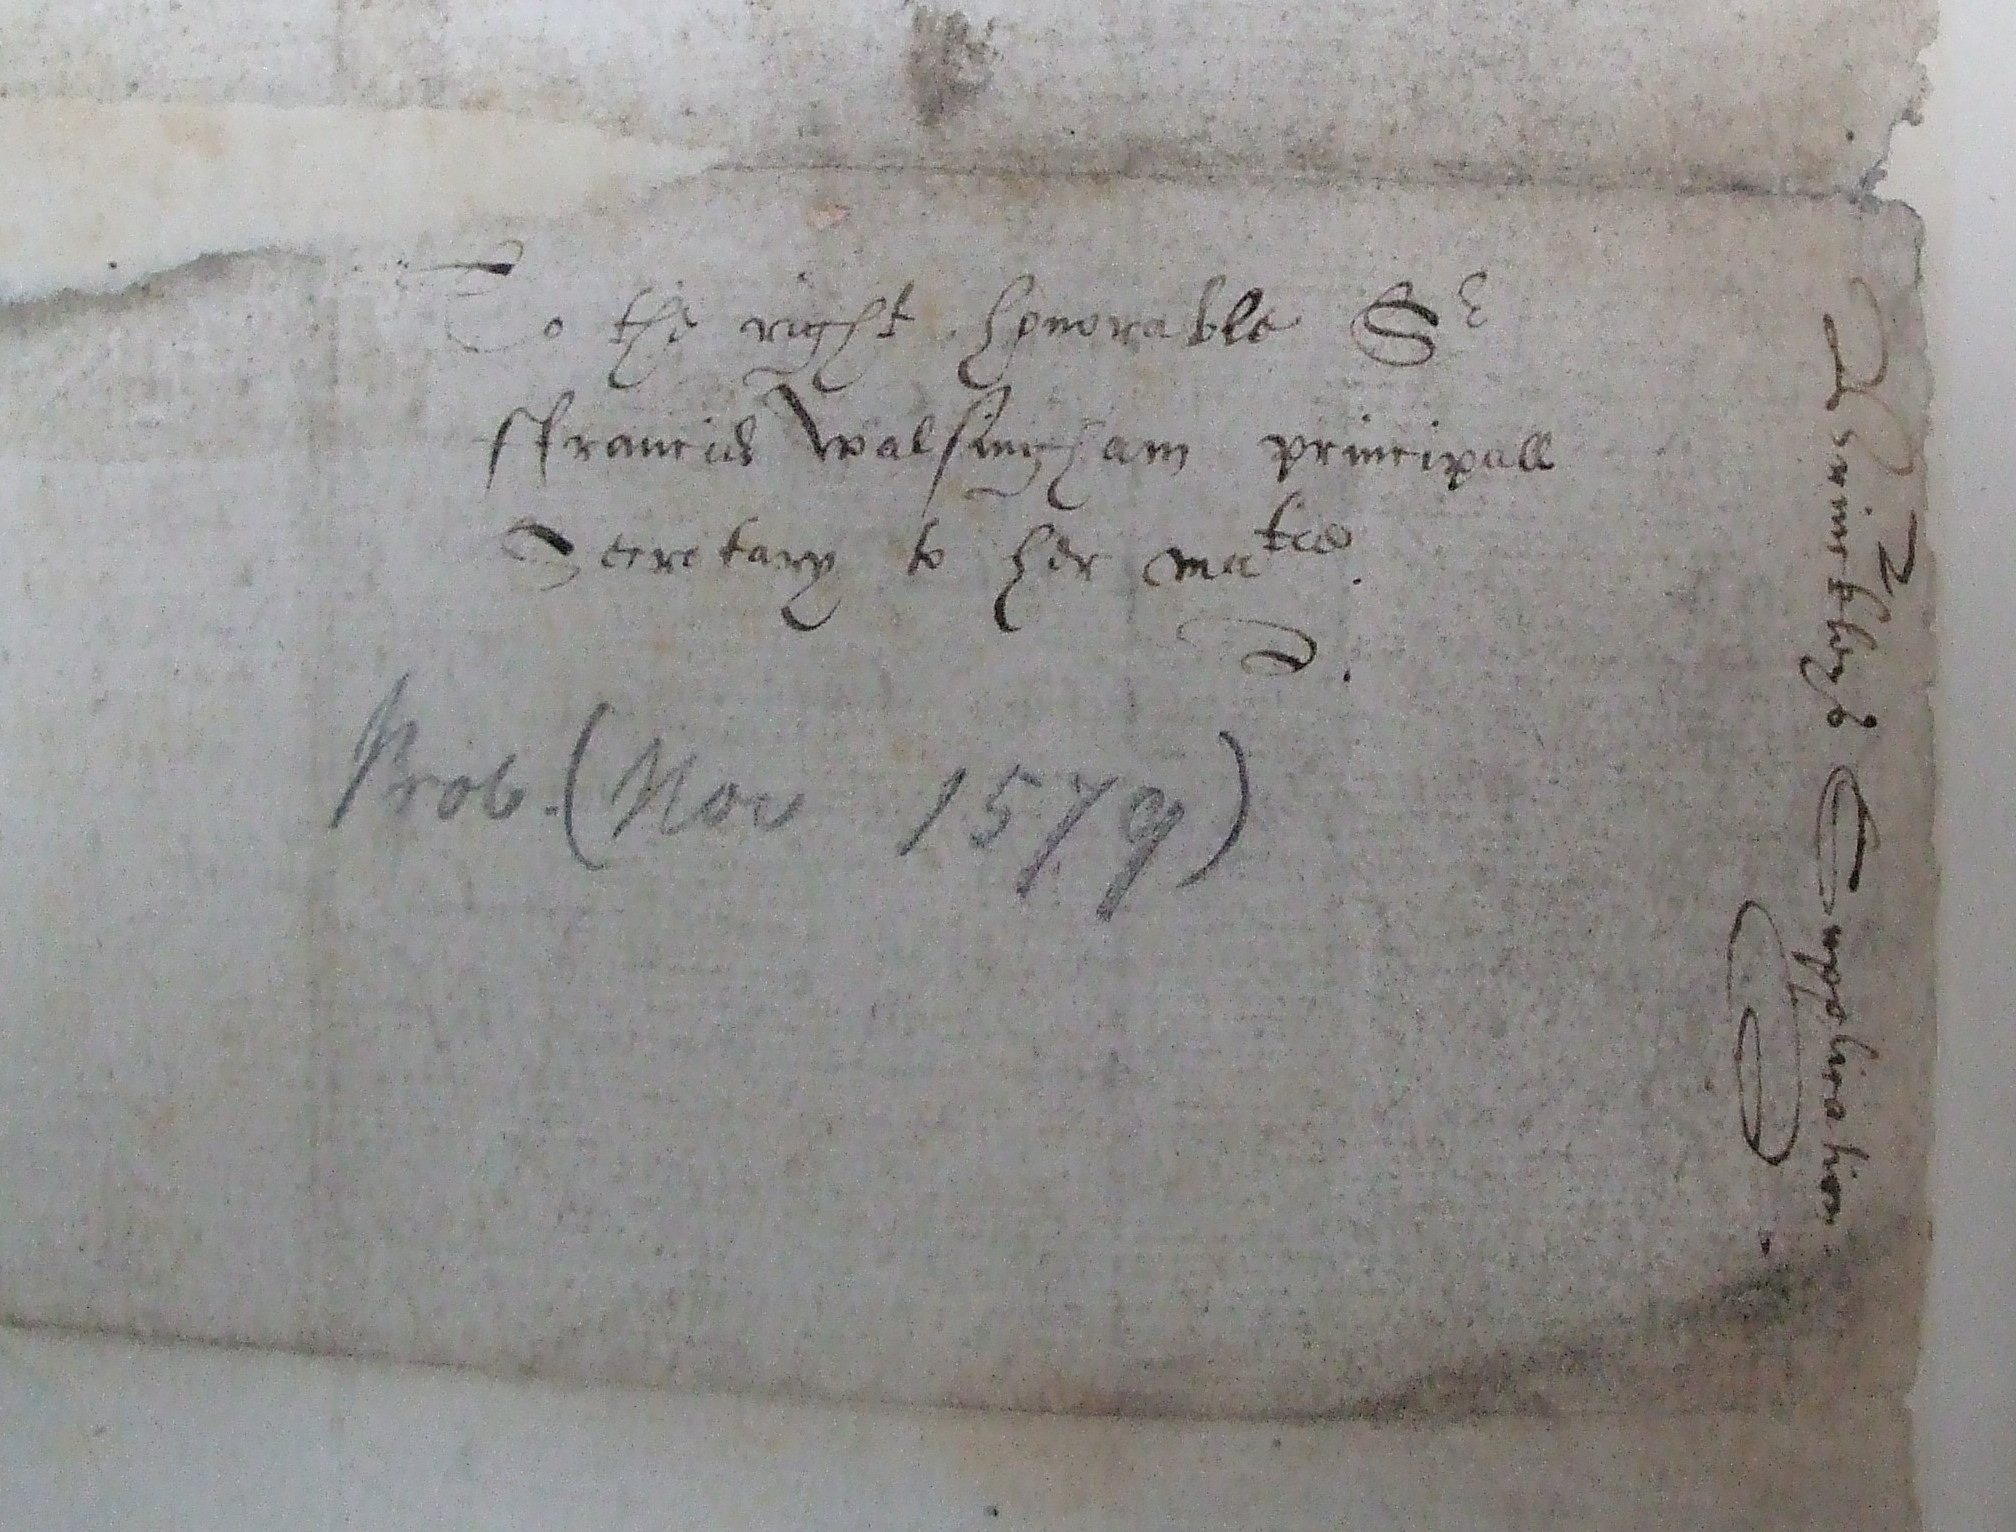 To the right honorable Sr
ffrancis Walsingham principall
Secretary to her matie.
Prob. (Nov 1579)
Supplication